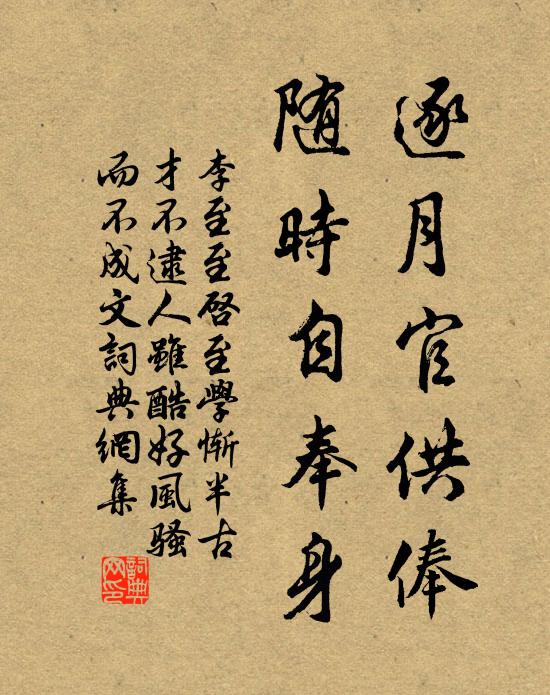 逐月官供俸
随時自奉身
李至至啓至學慚半古
才不逮人雖酷好風騷
而不成文詞典網集
詞典網印